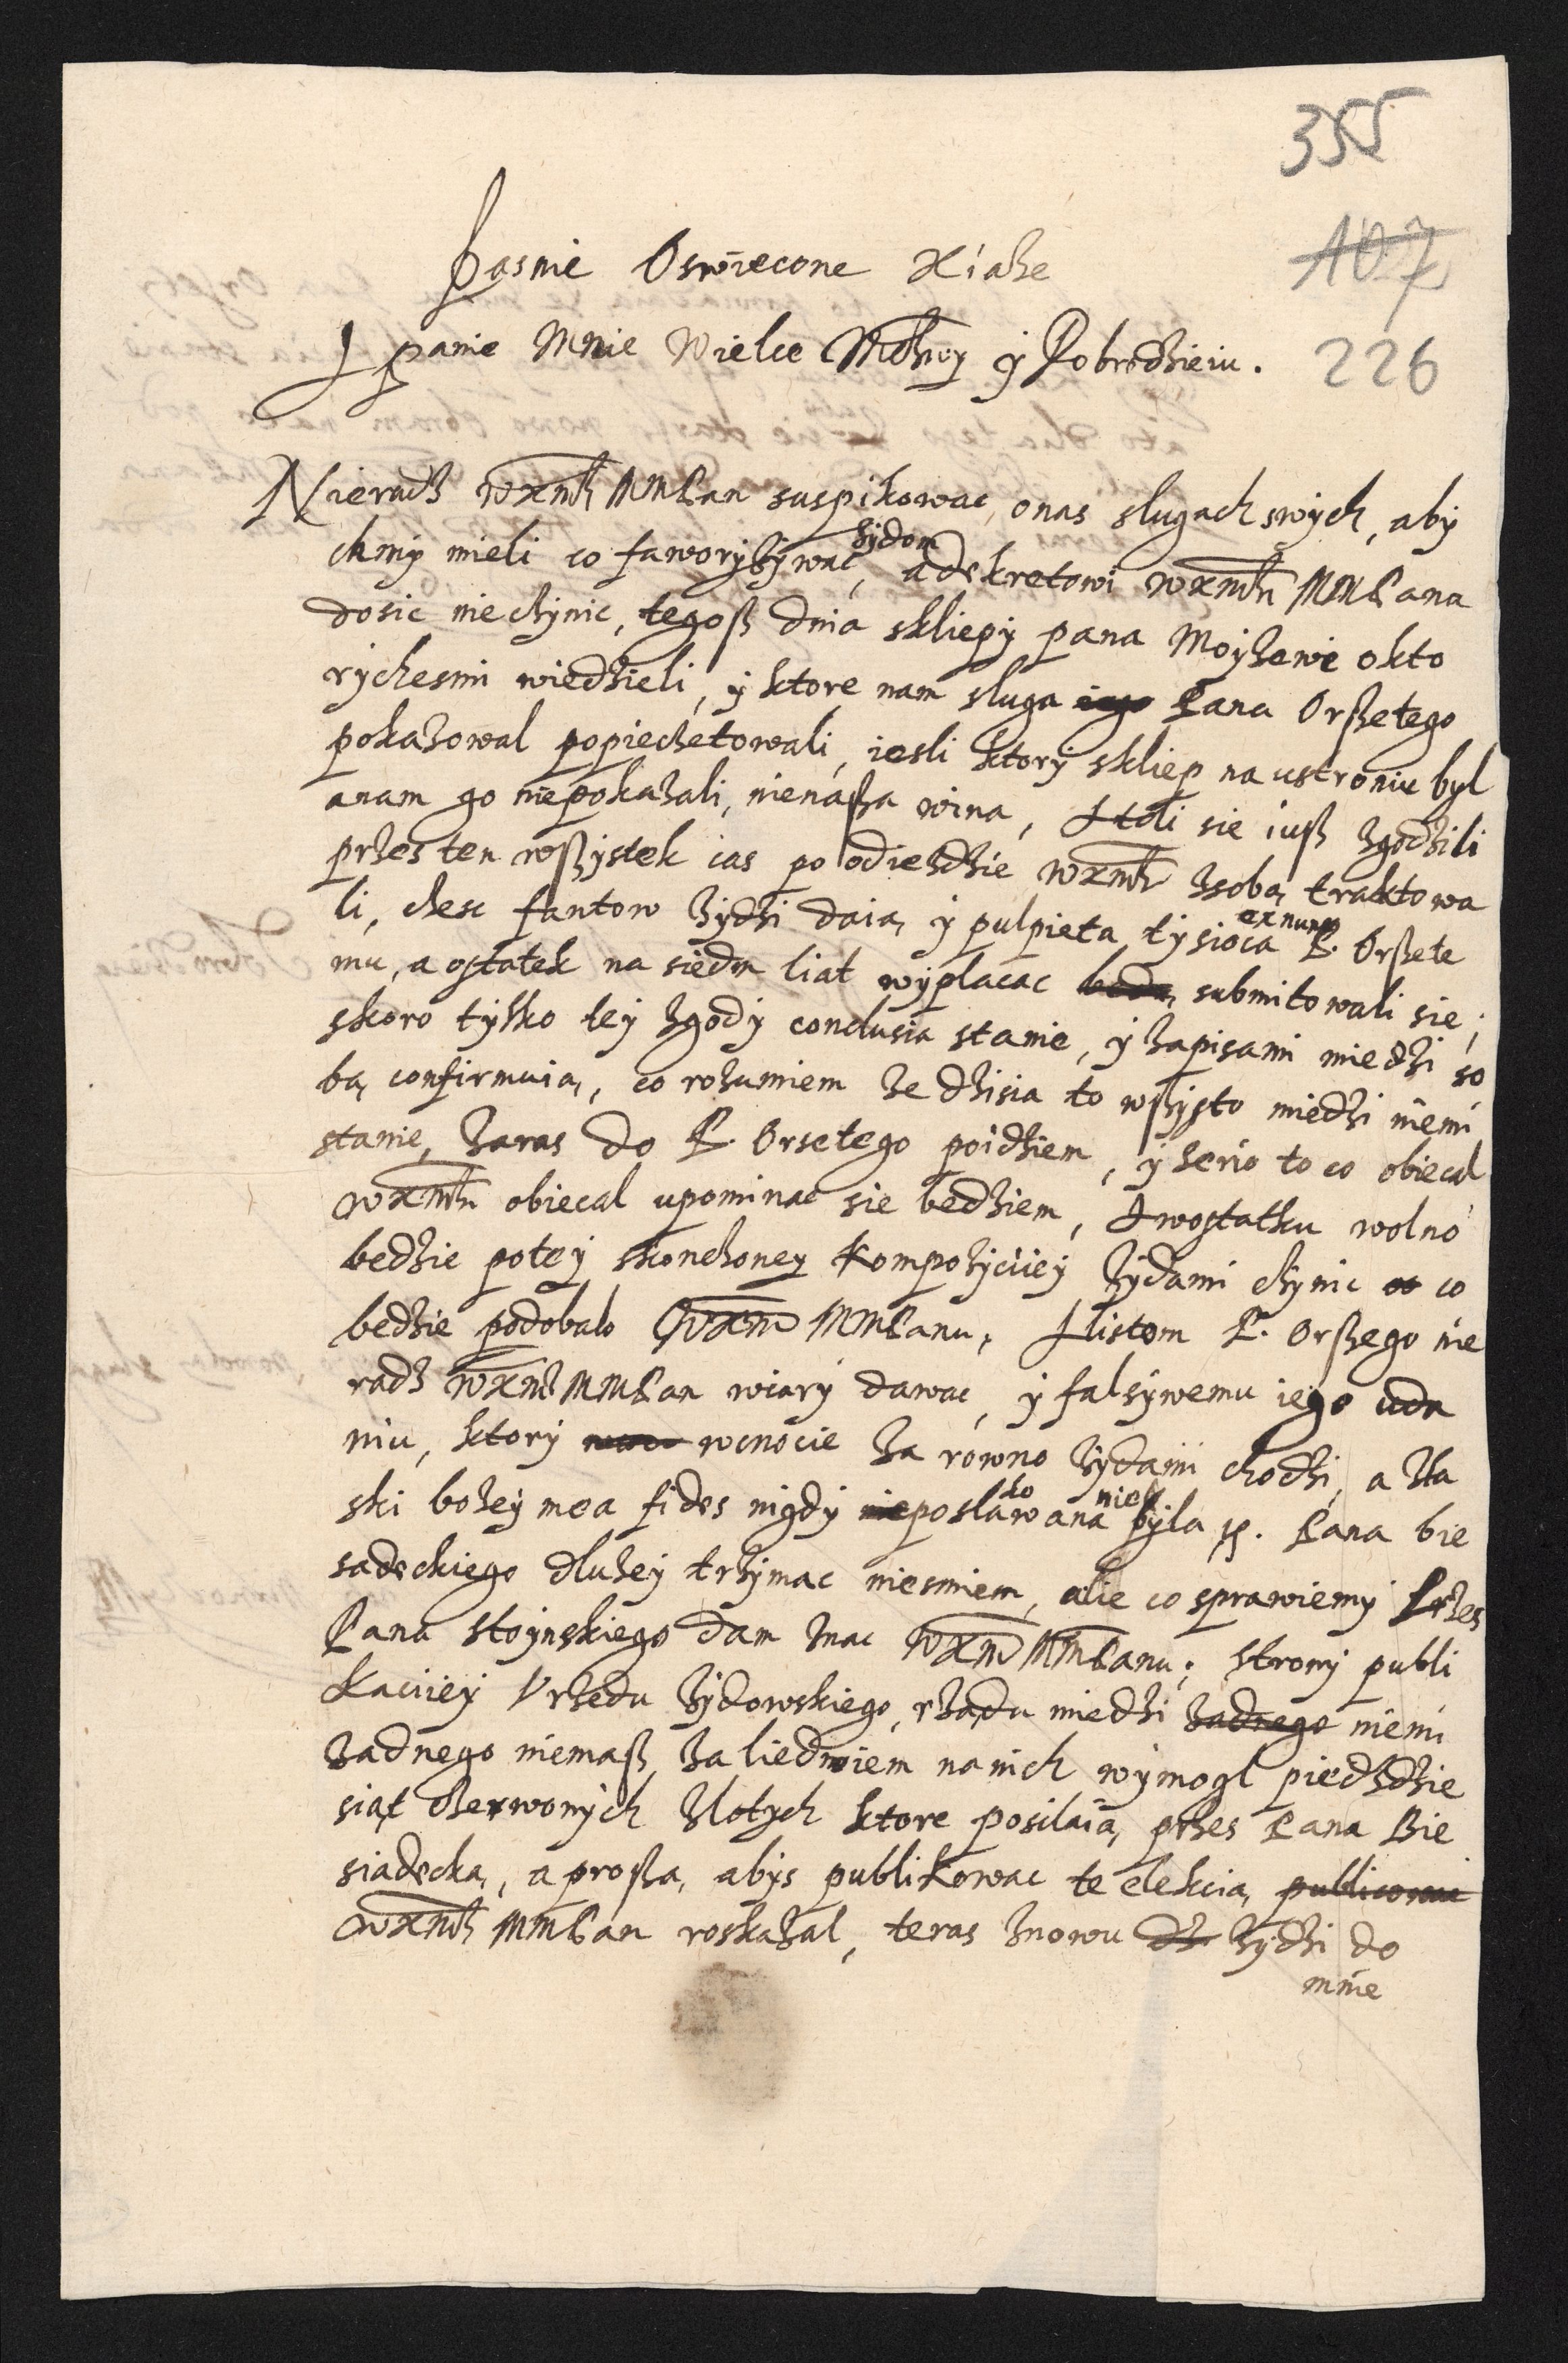 355
107
226
Jasnie Oswiecone Xiaze
Panie Mnie Wielce Mczwy y Dobrodzieiu.
Nieradz WXMcz MMPan suspikowac onas slugach swych, aby
chmy mieli co faworyzywac zydom, adekretowi WXMci MMPana
dosic nieczynic, tegosz dnia skliepy pana Moyzewe okto
rychesmi wiedzieli, y ktore nam sluga iego Pana Orszetego
pokazowal popieczetowali, iesli ktory skliep na ustroniu byl
anam go niepokazali, nienasza wina, iusz zgodzili
przes ten wszystek czas po odiezdzie WXMci zsoba, traktowa
li, chesc fantow zydzi daia, y pulpieta tysioca ex nunc P. Orszete
mu, a ostatek na siedm liat wyplacac beda, submitowali sie;
skoro tylko tey zgody conclusia stanie, y zapisami miedzi so
ba, confirmuia, co rozumiem ze dzisia to wszysto miedzi niemi
stanie, zaras do P. Orsetego poidziem, y serio to co obiecal
WXMci obiecal upominac sie bedziem, Awostatku wolno
bedzie potey skonczoney Kompozyciiey zydami czynic co co
bedzie podobalo WXM MMPanu, Alistom P. Orszego nie
radz WXMcz MMPan wiary dawac, y falsywemu iego uda
niu, ktory wcnocie za rowno zydami chodzi, a zla
ski bozey mea fides nigdy nieposlakowana nie byla ss. Pana bie
sadeckiego dluzey trzymac niesmiem, alie co sprawiemy Przes
Pana Stoynskiego dam znac WXM MMPanu; strony publi
kaciiey Vrzedu Zydowskiego, rzadu miedzi zadnego niemi
zadnego niemasz, zaliedwiem nanich wymogl piedzdzie
siat czerwonych zlotych ktore posilaia, przes Pana Bie
siadecka, a prosza, abys publikowac te elekcia, publicowac
WXMcz MMPan roskazal, teras znowu dz zydzi do
mnie